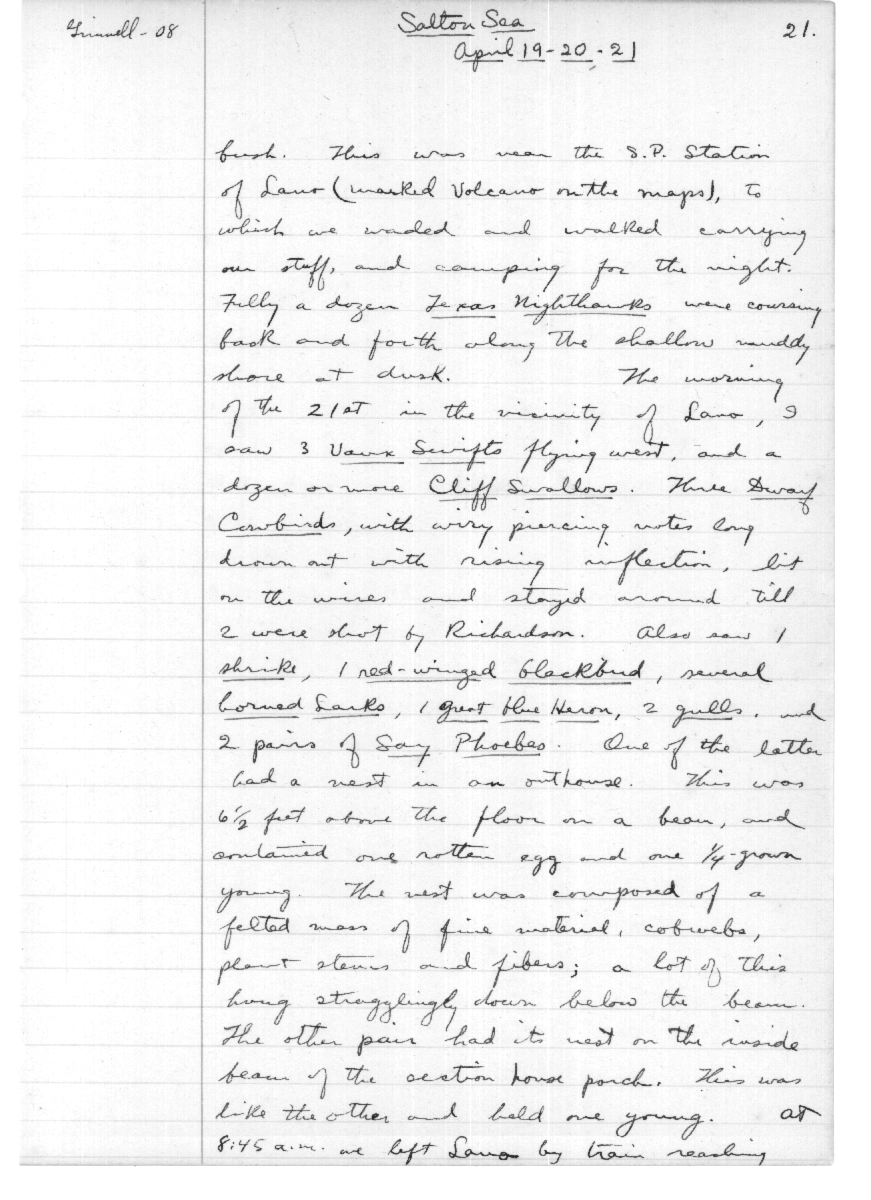 Grinnell - 08
Salton Sea
21.
April 19-20-21
bush. This was near the S.P. Station
of Lano (marked Volcano on the maps), to
which we waded and walked carrying
our stuff, and camping for the night.
Fully a dozen Texas Nighthawks were coursing
back and forth along the shallow muddy
shore at dusk. The morning
of the 21st in the vicinity of Lano, I
saw 3 Vaux Swifts flying west, and a
dozen or more Cliff Swallows. Three Dwarf
Cowbirds, with wiry piercing notes long
drawn out with rising inflection, lit
on the wires and stayed around till
2 were shot by Richardson. Also saw 1
shrike, 1 red-winged blackbird, several
horned Larks, 1 great blue Heron, 2 gulls, and
2 pairs of Say Phoebes. One of the latter
had a nest in an outhouse. This was
6½ feet above the floor on a beam, and
contained one rotten egg and one ¼-grown
young. The nest was composed of a
felted mass of fine material, cobwebs,
plant stems and fibers; a lot of this
hung stragglingly down below the beam.
The other pair had its nest on the inside
beam of the section house porch. This was
like the other and held one young. At
8:45 a.m. we left Lano by train reaching